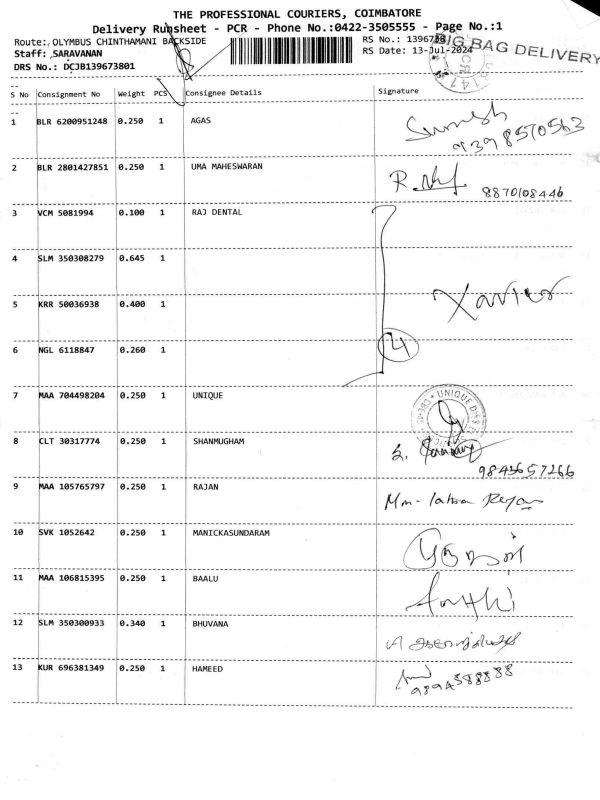 THE PROFESSIONAL COURIERS, COIMBATORE
Delivery Runsheet - PCR - Phone No.:0422-3505555 - Page No.:1
Route: OLYMBUS CHINTHAMANI BACKSIDE
RS No.: 1396738
BIG BAG DELIVERY
Staff: SARAVANAN
RS Date: 13-Jul-2024
DRS No.: DCJB139673801
S No Consignment No Weight PCS Consignee Details Signature
1 BLR 6200951248 0.250 1 AGAS
9398570563
2 BLR 2801427851 0.250 1 UMA MAHESWARAN
8870108446
3 VCM 5081994 0.100 1 RAJ DENTAL
4 SLM 350308279 0.645 1
5 KRR 50036938 0.400 1 Xavier
6 NGL 6118847 0.260 1 4
7 MAA 704498204 0.250 1 UNIQUE
8 CLT 30317774 0.250 1 SHANMUGHAM
9843657266
9 MAA 105765797 0.250 1 RAJAN
10 SVK 1052642 0.250 1 MANICKASUNDARAM
11 MAA 106815395 0.250 1 BAALU
12 SLM 350300933 0.340 1 BHUVANA
13 KUR 696381349 0.250 1 HAMEED
9894588888